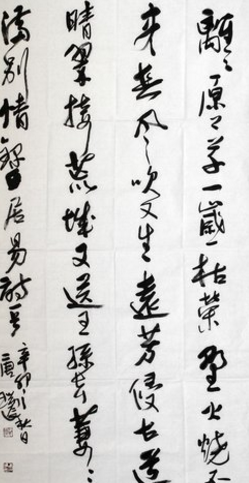 離〻原上草一歲一枯榮野火燒不
盡春風吹又生遠芳侵古道
晴翠接荒城又送王孫去萋〻
滿別情錄白居易詩一首
辛卯年秋日